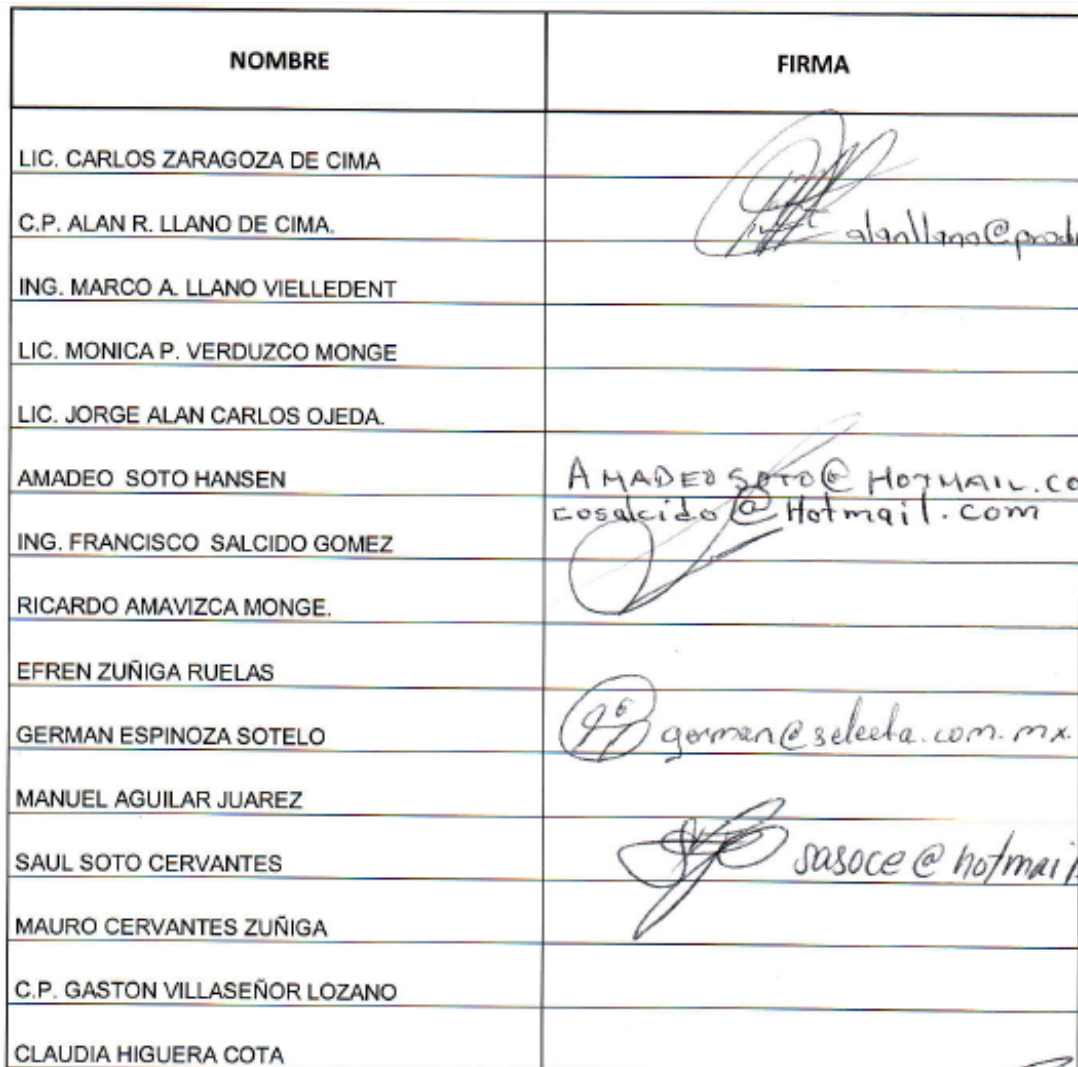 NOMBRE FIRMA
LIC. CARLOS ZARAGOZA DE CIMA
C.P. ALAN R. LLANO DE CIMA. alanllano@produ
ING. MARCO A. LLANO VIELLEDENT
LIC. MONICA P. VERDUZCO MONGE
LIC. JORGE ALAN CARLOS OJEDA.
AMADEO SOTO HANSEN AMADEOSOTO@HOTMAIL.CO
cosalcido@Hotmail.com
ING. FRANCISCO SALCIDO GOMEZ
RICARDO AMAVIZCA MONGE.
EFREN ZUÑIGA RUELAS
GERMAN ESPINOZA SOTELO german@selecta.com.mx.
MANUEL AGUILAR JUAREZ
SAUL SOTO CERVANTES sasoce@hotmail
MAURO CERVANTES ZUÑIGA
C.P. GASTON VILLASEÑOR LOZANO
CLAUDIA HIGUERA COTA